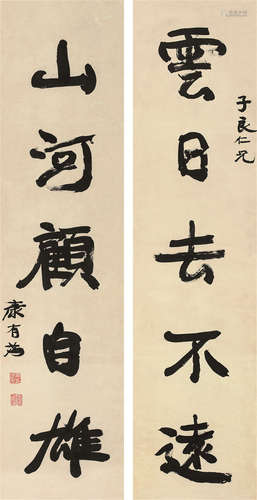 雲日去不遠
子良仁兄
山河顧自雄
康有為